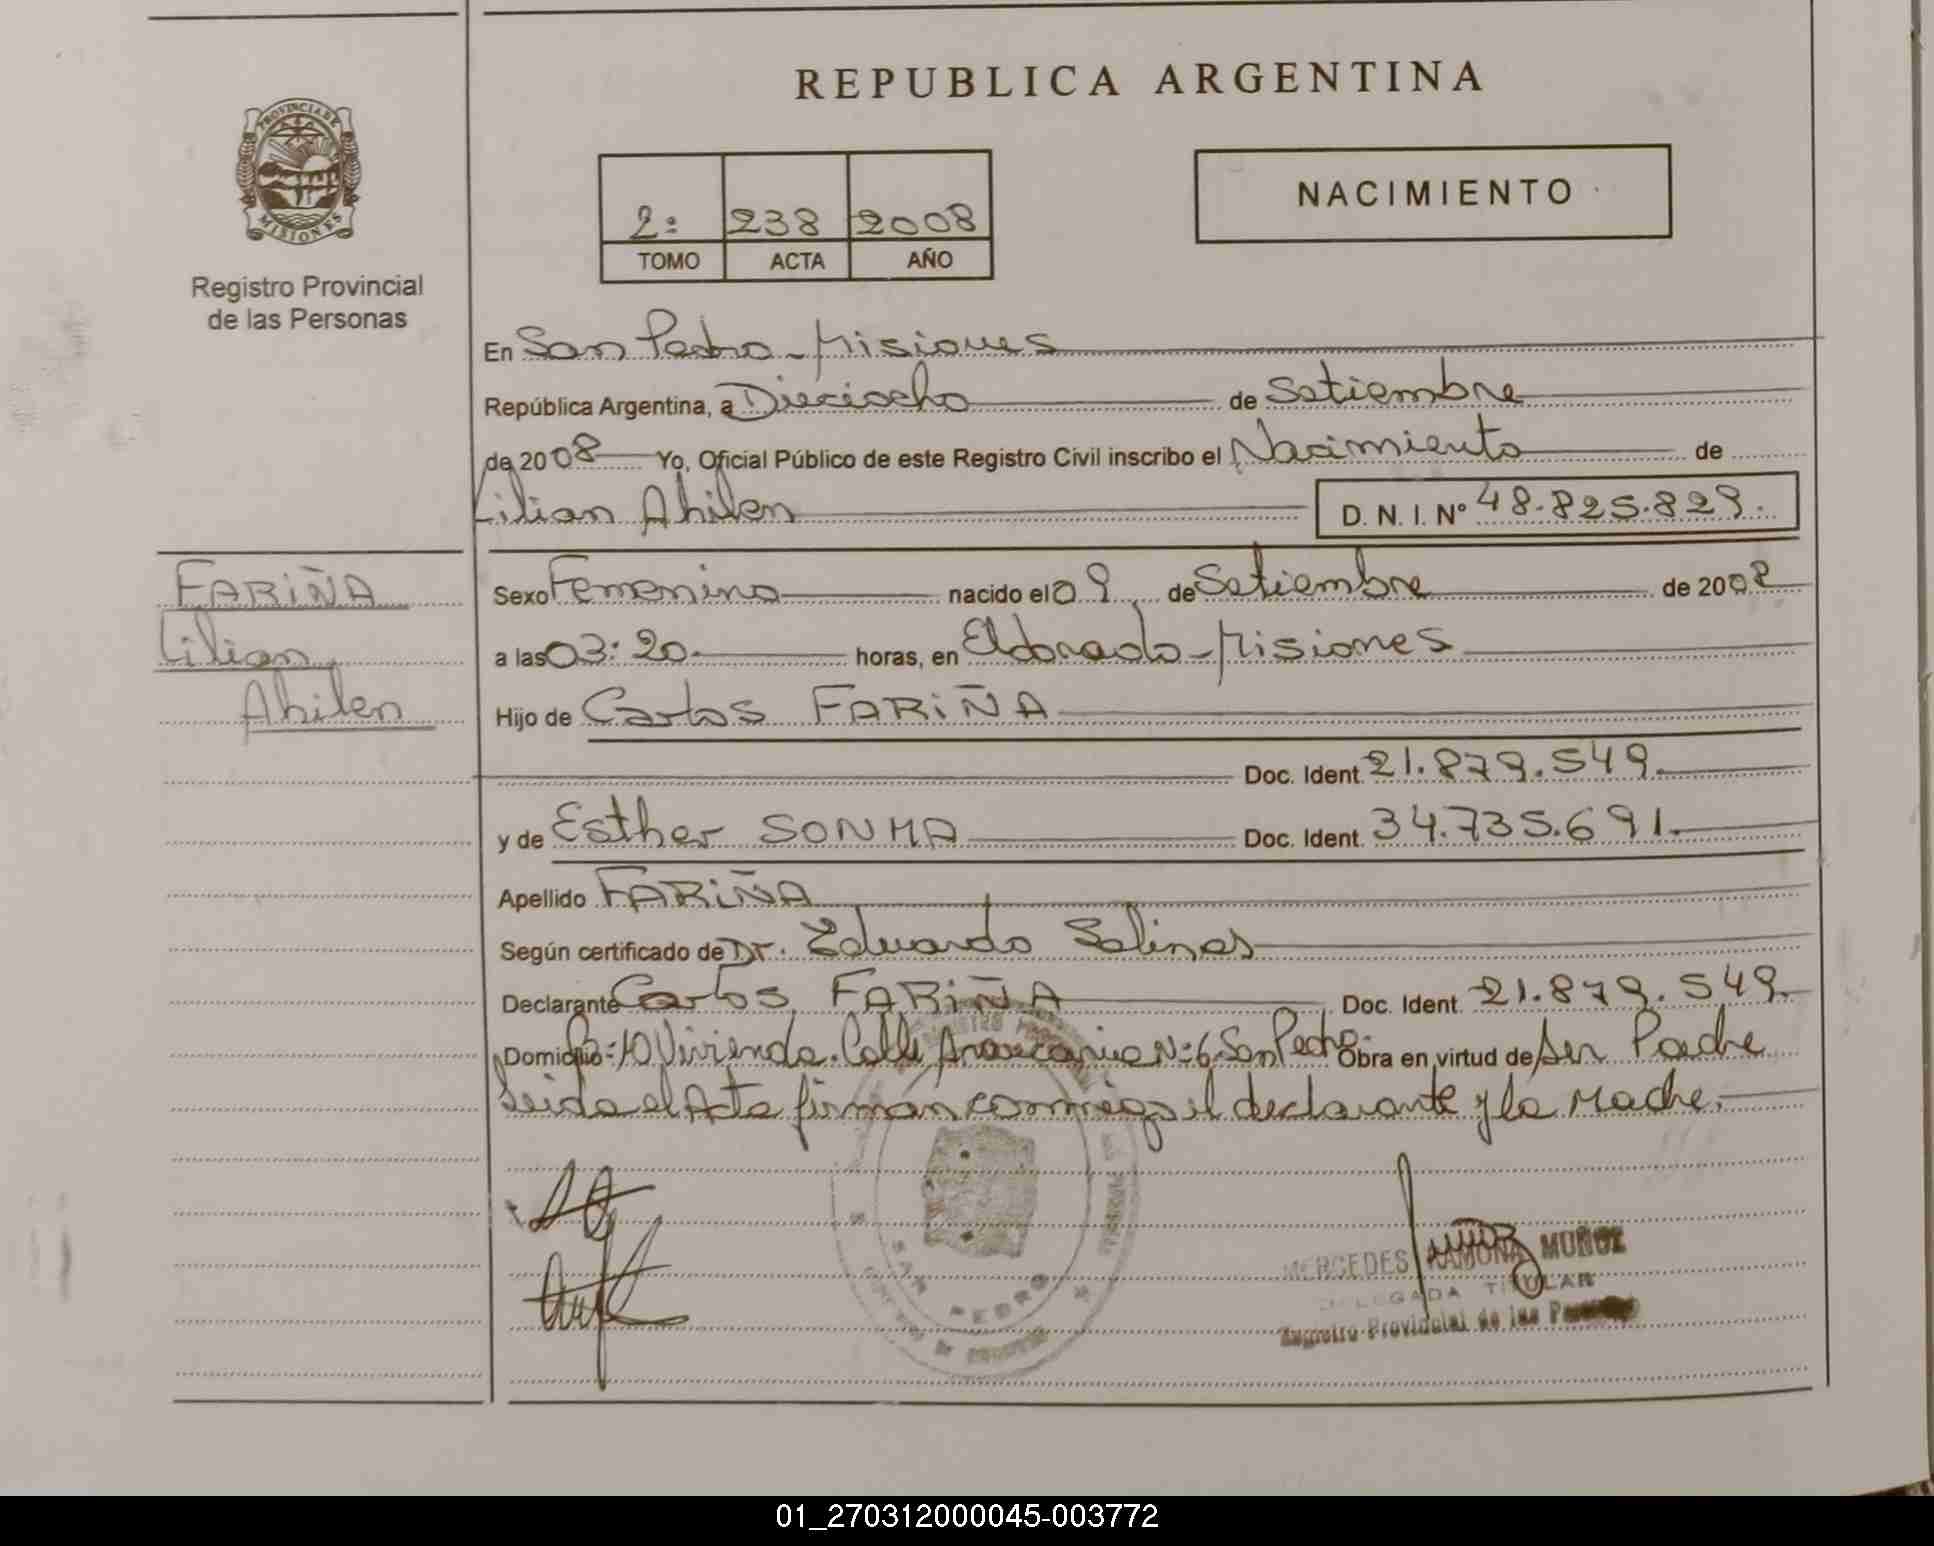 REPUBLICA ARGENTINA
PROVINCIA DE
MISIONES
Registro Provincial
de las Personas
2: 238 2008
TOMO ACTA AÑO
NACIMIENTO
En San Pedro - Misiones
República Argentina, a Dieciocho de Setiembre
de 2008 Yo, Oficial Público de este Registro Civil inscribo el Nacimiento de
Lilian Ahilen D. N. I. Nº 48.825.829.
FARIÑA
Lilian
Ahilen
Sexo Femenino nacido el 09 de Setiembre de 2008
a las 03:20 horas, en Eldorado - Misiones
Hijo de Carlos FARIÑA
Doc. Ident. 21.879.549.
y de Esther SONMA Doc. Ident. 34.735.691.
Apellido FARIÑA
Según certificado de Dr. Eduardo Salinas
Declarante Carlos FARIÑA Doc. Ident. 21.879.549.
Domicilio Bº: 40 Vivienda. Calle Araucaria Nº: 6 San Pedro Obra en virtud de ser Padre
Leida el Acta firman conmigo el declarante y la Madre.
SAN PEDRO
MERCEDES RAMONA MUÑOZ
DELEGADA TITULAR
Registro Provincial de las Personas
01_270312000045-003772